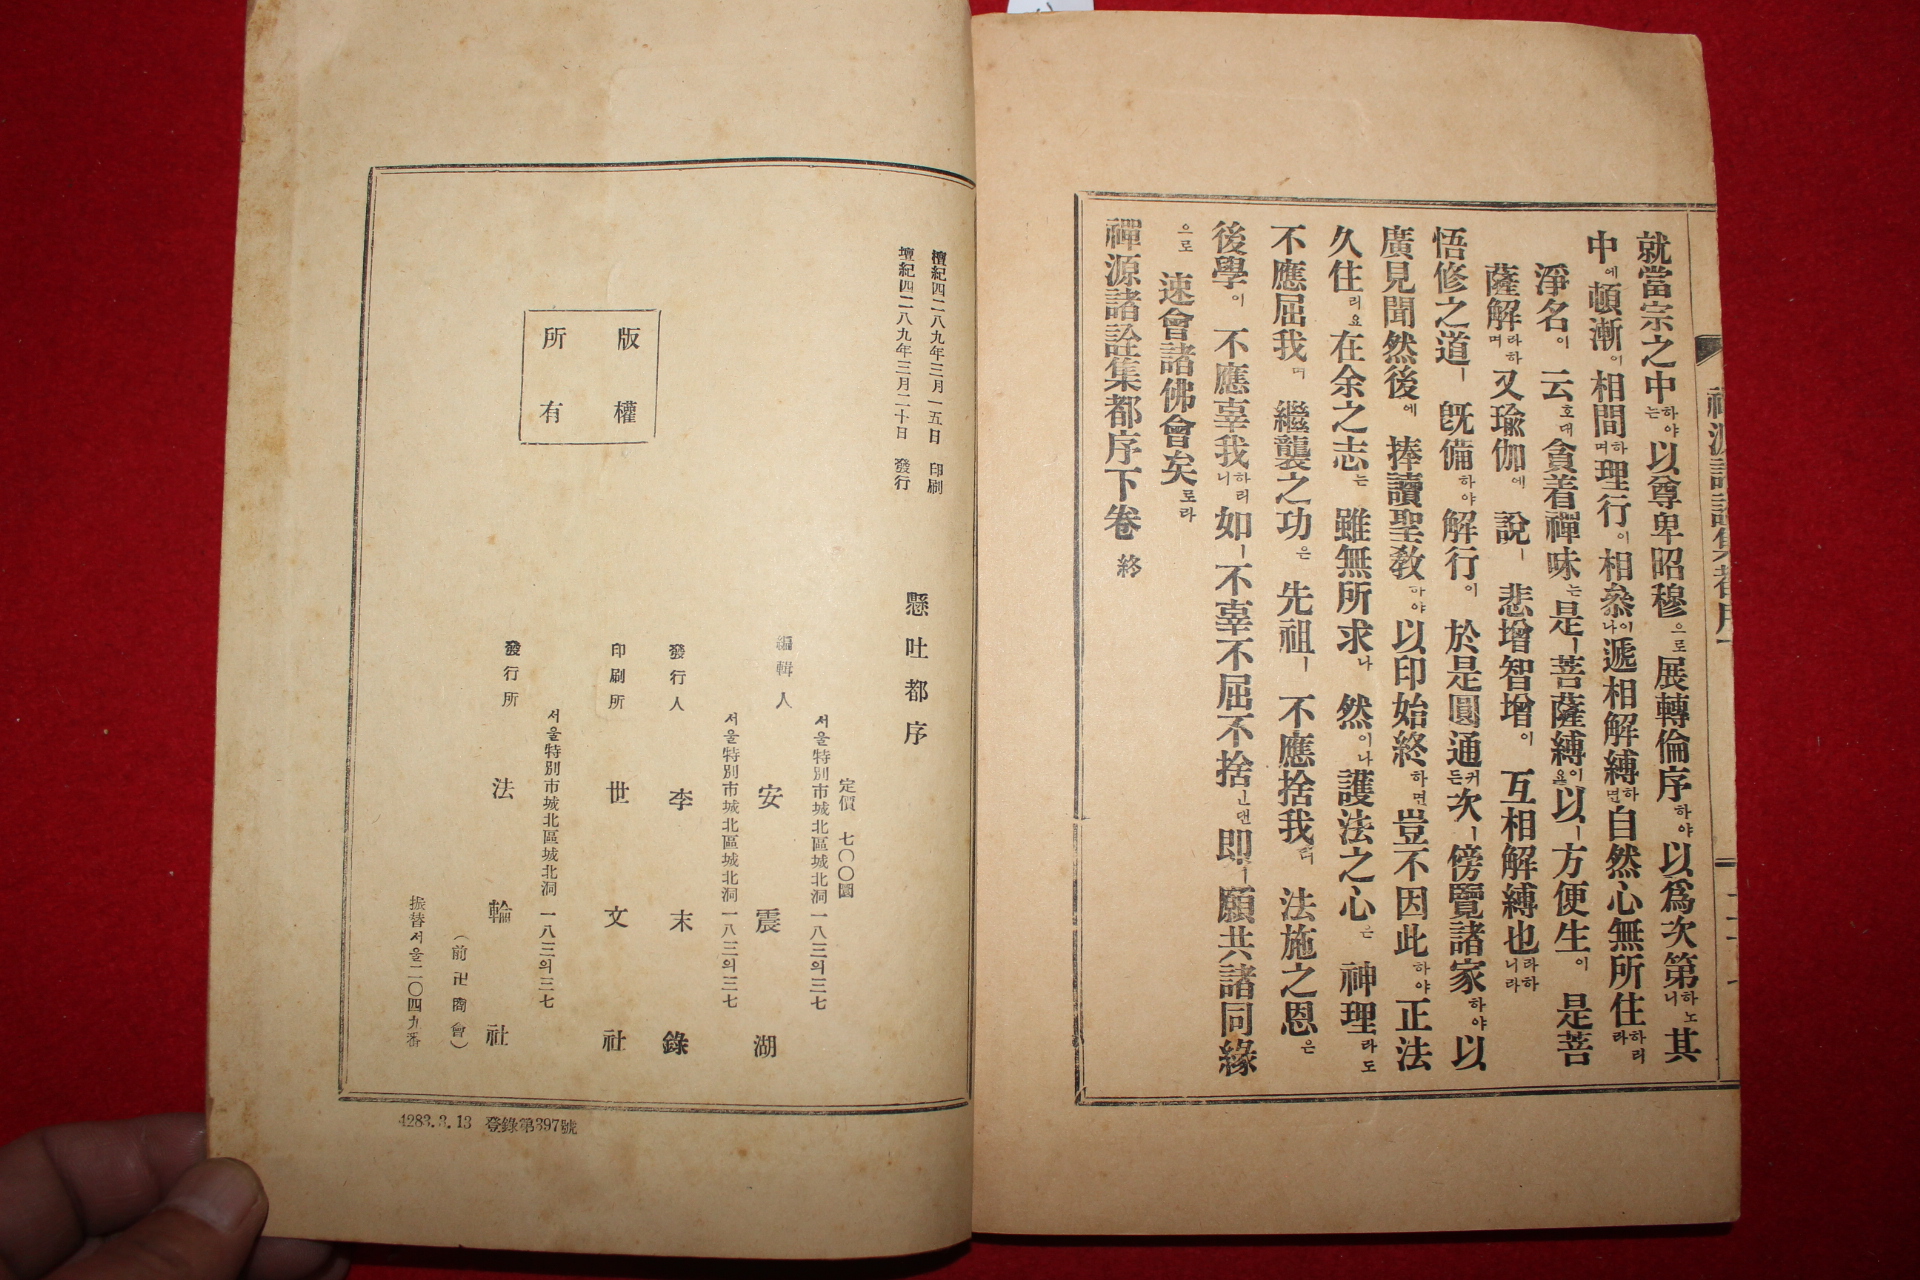 就當宗之中하야는以尊卑昭穆으로展轉倫序하야以爲次第하노니其
中에頓漸이相間하며理行이相叅이나遞相解縛하면自然心無所住하리라
淨名이云호대貪着禪味는是ㅣ菩薩縛이옴以ㅣ方便生이是菩
薩解라하며又瑜伽에說ㅣ悲增智增이互相解縛也라하니라
悟修之道ㅣ旣備하야解行이於是圓通커든次ㅣ傍覽諸家하야以
廣見聞然後에捧讀聖敎하야以印始終하면豈不因此하야正法
久住리요在余之志는雖無所求나然이나護法之心은神理라도
不應屈我며繼襲之功은先祖ㅣ不應捨我며法施之恩은
後學이不應辜我하리니如ㅣ不辜不屈不捨ㄴ댄即ㅣ願共諸同緣
으로速會諸佛會矣로라
禪源諸詮集都序下卷 終
檀紀四二八九年三月一五日 印刷
壇紀四二八九年三月二十日 發行
懸吐都序
版權
所有
定價 七〇〇圜
서울特別市城北區城北洞一八三의三七
編輯人 安震湖
서울特別市城北區城北洞一八三의三七
發行人 李末錄
印刷所 世文社
서울特別市城北區城北洞一八三의三七
發行所 法輪社
(前卍商會)
振替서울二〇四九番
4283.3.13 登錄第397號